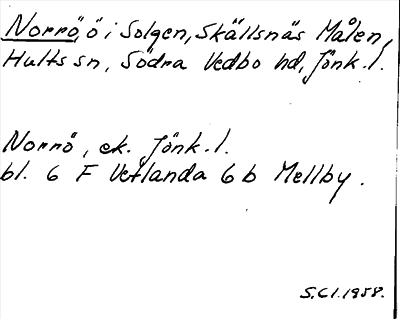 Norrö, ö i Solgen, Skällsnäs Målen,
Hults sn, Södra Vedbo hd, Jönk. l.
Norrö, ek. Jönk. l.
bl. 6 F Vetlanda 6 b Mellby.
S.C.l. 1958.